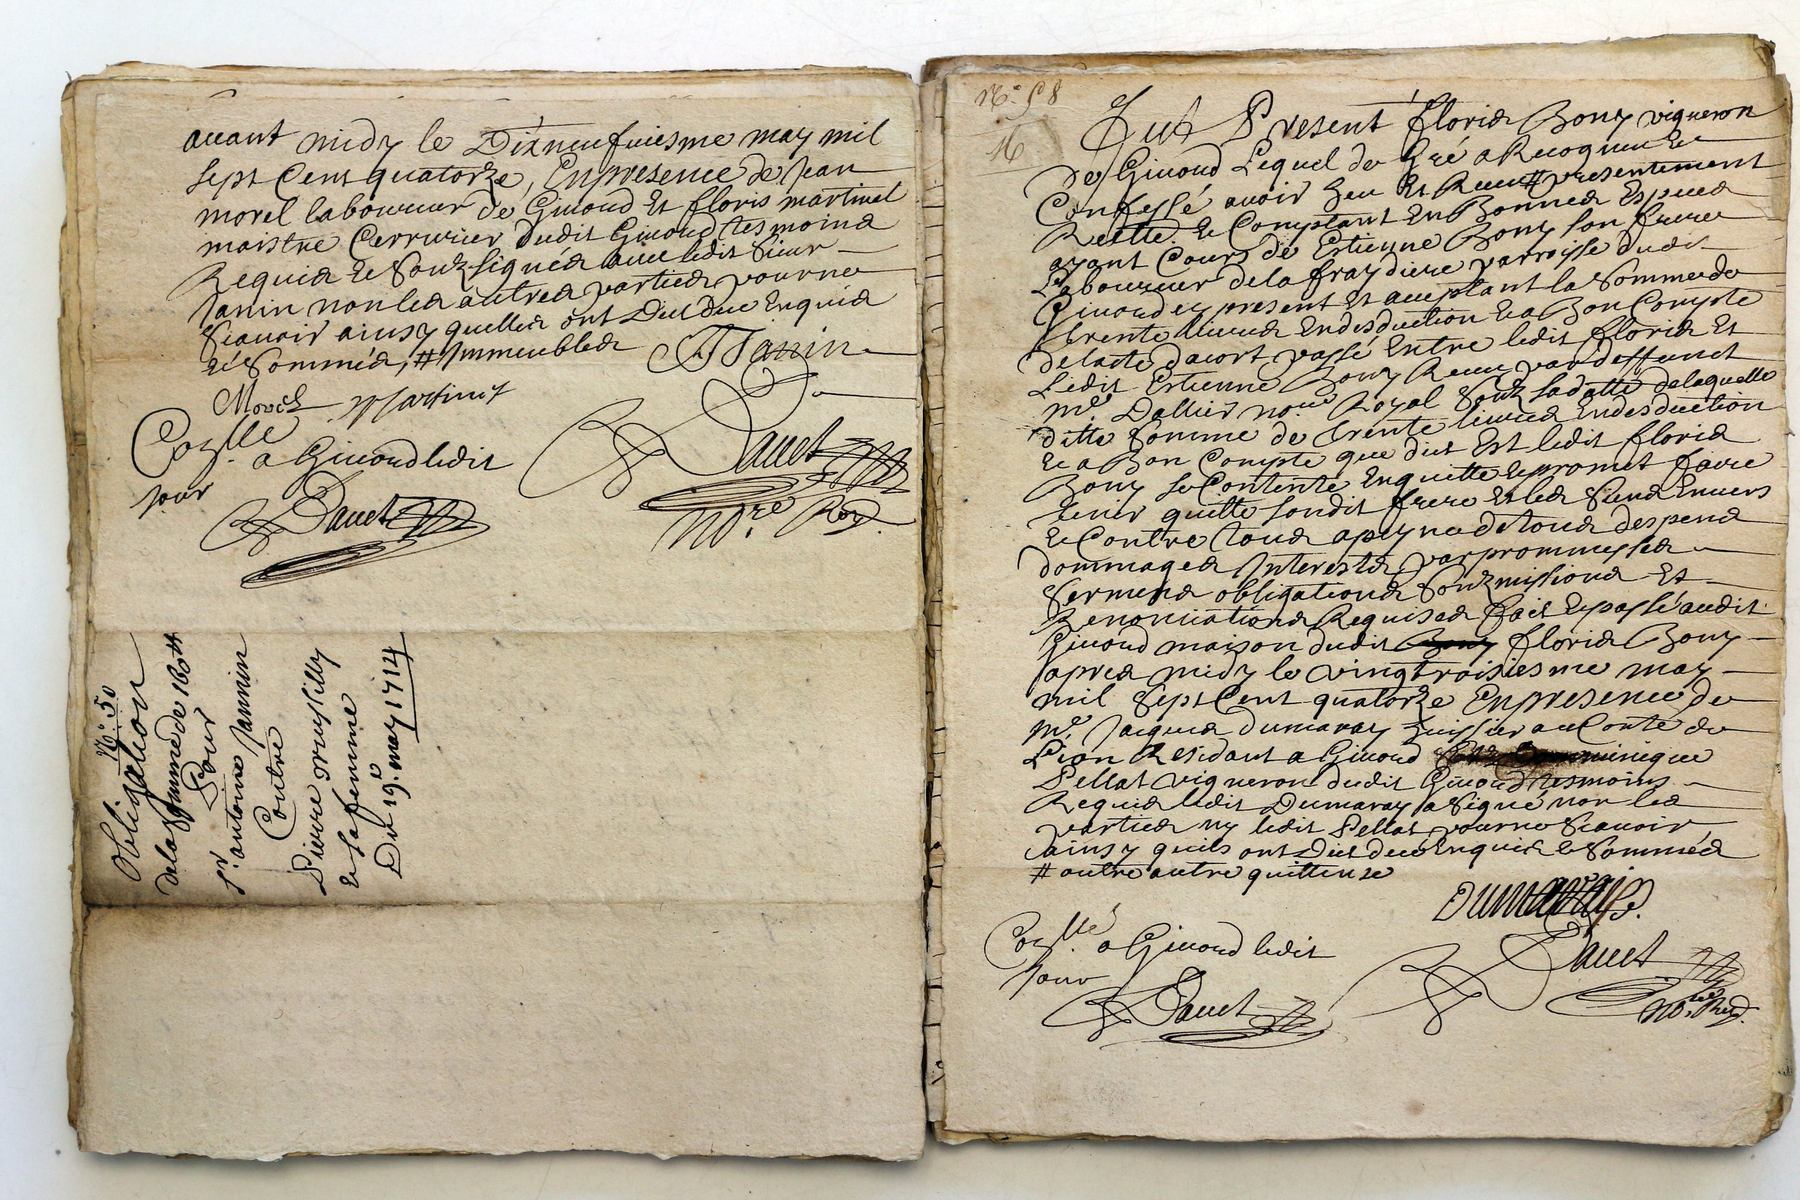 avant midy le Dixneufviesme may mil
sept Cent quatorze, En presence de Jean
morel laboureur de Givord Et floris martinet
maistre Cerrurier dudit Givord tesmoins
Requis & Soubzsignés avec ledit Sieur
Janin non les autres parties pour ne
Scavoir ainsy quelles ont Dict de ce Enquis
& Sommés, # Immeubles AJanin
Morel Martinet
Conllé a Givord ledit
jour
Dauet
Dauet
No.re Roy.
N.o 50
Obligation
de la Somme de 160 tt
Pour
S.r antoine Jannin
Contre
Pierre
& sa femme
Du 19.e may 1714
N.o 58
16
Fut Present floris Bony vigneron
de Givord Lequel de Gré a Recogneu &
Confessé avoir heu Et Receu # presentement
Reelle. & Comptant En Bonnes Especes
ayant Cours de Estienne Bony son frere
Laboureur de la fraydiere parroisse dudit
Givord cy present Et acceptant la Somme de
trente livres En desduction & a Bon Compte
de lacte dacort passé Entre ledit floris Et
Ledit Estienne Bony Receu par deffunct
m.e Dallier no.re Royal Soubz sa datte de laquelle
ditte Somme de trente livres En desduction
& a Bon Compte que dict Est ledit floris
Bony se Contente En quitte & promet faire
tenir quitte sondit frere Et les Siens Envers
& Contre tous a peyne de tous despens
dommages Interests par prommesses
Serments obligations Soubzmissions Et
Renonciations Requises faict & passé audit
Givord maison dudit Bony floris Bony
apres midy le vingt troisiesme may
mil Sept Cent quatorze En presence de
m.e Jacques Dumaray huissier au Conté de
Lion Residant a Givord
Pellat vigneron dudit Givord tesmoins
Requis ledit Dumaray a Signé non les
parties ny ledit Pellat pour ne Scavoir
ainsy quils ont Dict de ce Enquis & Sommés
# outre autre quittense
Dumaray
Conllé a Givord ledit
jour
Dauet
Dauet
No.re Roy.